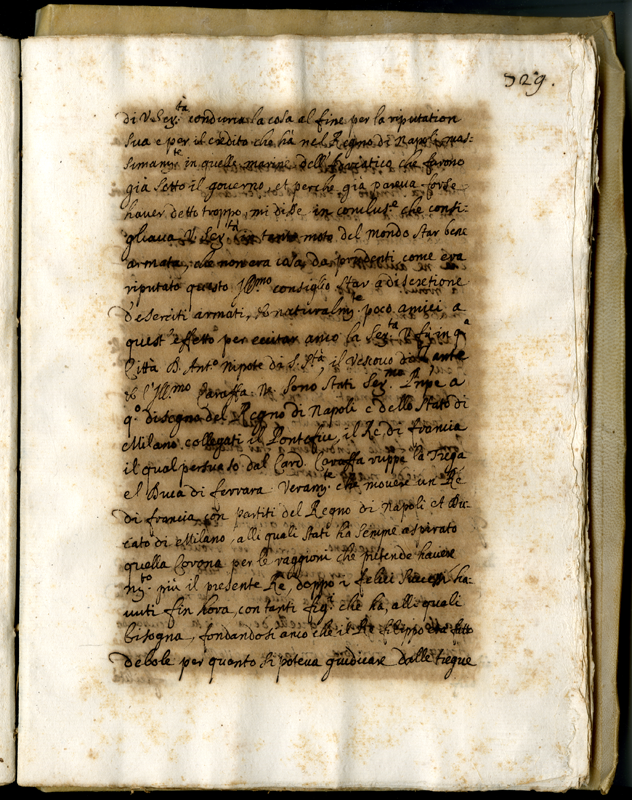 329.
di V. Ser.tà condurria la cosa al fine per la riputation
sua e per il credito che ha nel Regno di Napoli mas-
simam.te in quelle marine dell'Adriatico che furono
già sotto il governo, et perche già pareva forse
haver detto troppo, mi disse in conclus.e che consi-
gliava V. Ser.tà in tante moto del mondo star bene
armata, che non era cosa da prudenti come era
riputato questo Ill.mo consiglio star a discretione
d'eserciti armati, et naturalm.te poco amici, a
quest'effetto per eccitar anco la Ser.tà V. fu in q.a
Città D. Ant.o Nipote di S. S.tà, il Vescovo
et l'Ill.mo Caraffa. Ne sono stati Ser.mo Prīpe a
q.o disegno del Regno di Napoli e dello Stato di
Milano collegati il Pontefice, il Re di francia
il qual persuaso dal Card. Caraffa ruppe la Tregua
e'l Duca di ferrara. Veram.te che movere un Rè
di francia con partiti del Regno di Napoli et Du-
cato di Milano, alli quali Stati ha sempre aspirato
quella Corona per le raggioni che pretende havere
m.to più il presente Rè, doppo i felici successi ha-
vuti fin hora, con tanti fig.li che ha, alli quali
bisogna, fondandosi anco che il Re Filippo
debole per quanto si poteva giudicare dalle tregue